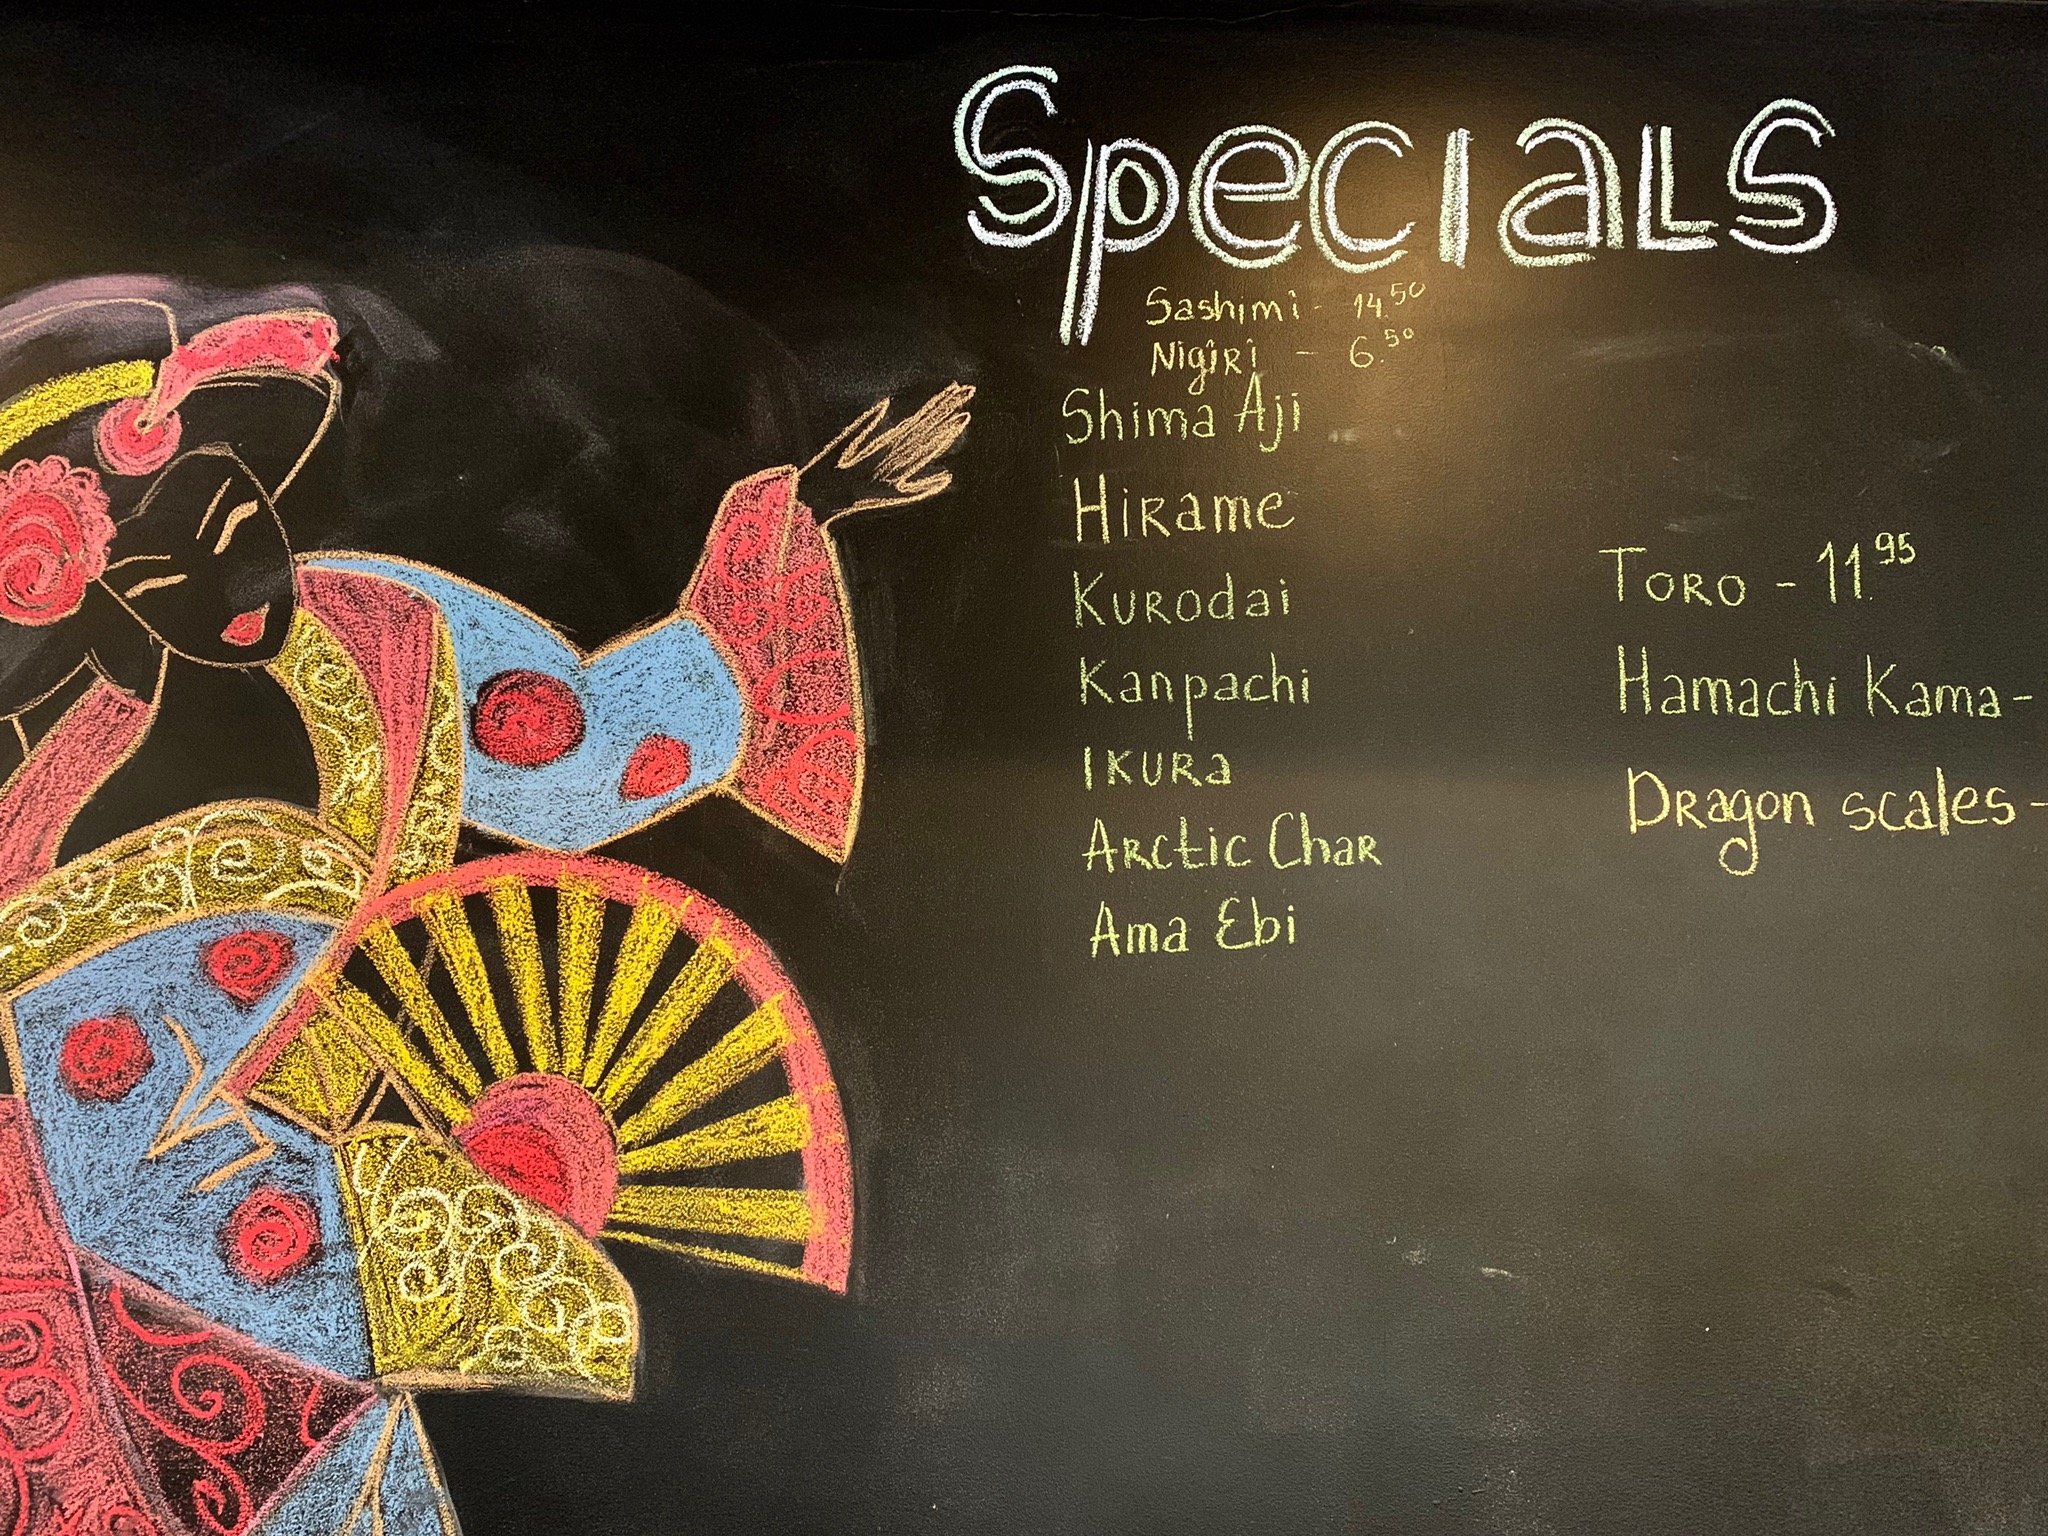 Specials
Sashimi - 14.50
Nigiri - 6.50
Shima Aji
Hirame
Kurodai
Kanpachi
Ikura
Arctic Char
Ama Ebi
Toro - 11.95
Hamachi Kama -
Dragon scales -